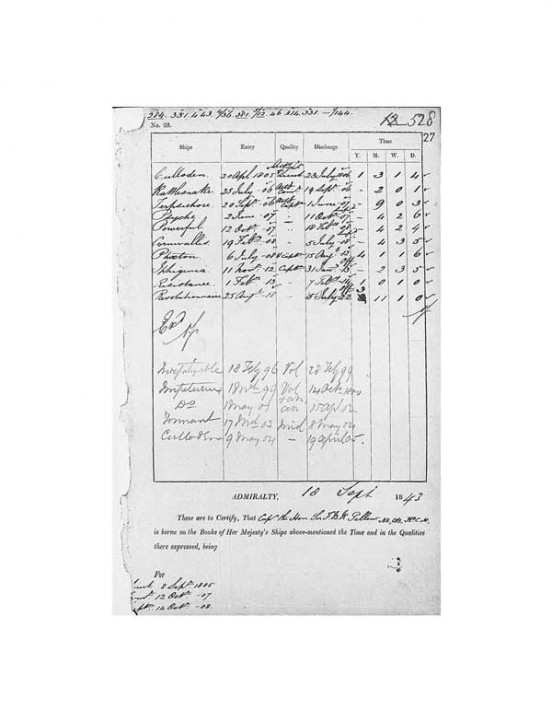 284. 331. 443.
12 528
No. 23.
27
Ships Entry Quality Discharge Time
Y. M. W. D.
Culloden 20 Apl 1805 Lieut 23 July 1806 1 3 1 4
Rattlesnake 25 July -06 19 Sept 06 - 2 0 1
Terpsichore 20 Sept -06 1 June -07 - 9 0 3
Psyche 2 June -07 " 11 Octr 07 - 4 2 6
Powerful 12 Octr -07 " 18 Feb - 4 2 4
Cornwallis 19 Feb -08 " 5 July -08 - 4 3 5
Phaeton 6 July -08 Captn 15 Aug 12 4 1 1 6
Iphigenia 11 Novr -12 Captn 31 Jan 13 - 2 3 5
Resistance 1 Feb -13 " 7 Feb 14 1 0 1 0
Revolutionnaire 25 Augt " 8 July 22 11 1 0
Exd
Indefatigable 18 Feby 96 Vol 28 Feby 99
Impetueux 1 Mch 99 Vol 14 Octr 1800
Do 1 May 01 15 Apl 02
Tonnant 17 Mch 02 Mid 8 May 04
Culloden 9 May 04 - 19 April 05.
ADMIRALTY, 18 Sept 1843
These are to Certify, That Captn the Hon Sir F B R Pellew
is borne on the Books of Her Majesty's Ships above-mentioned the Time and in the Qualities
there expressed, being
For
Lieut 8 Septr 1805
12 Octr -07
14 Octr -08